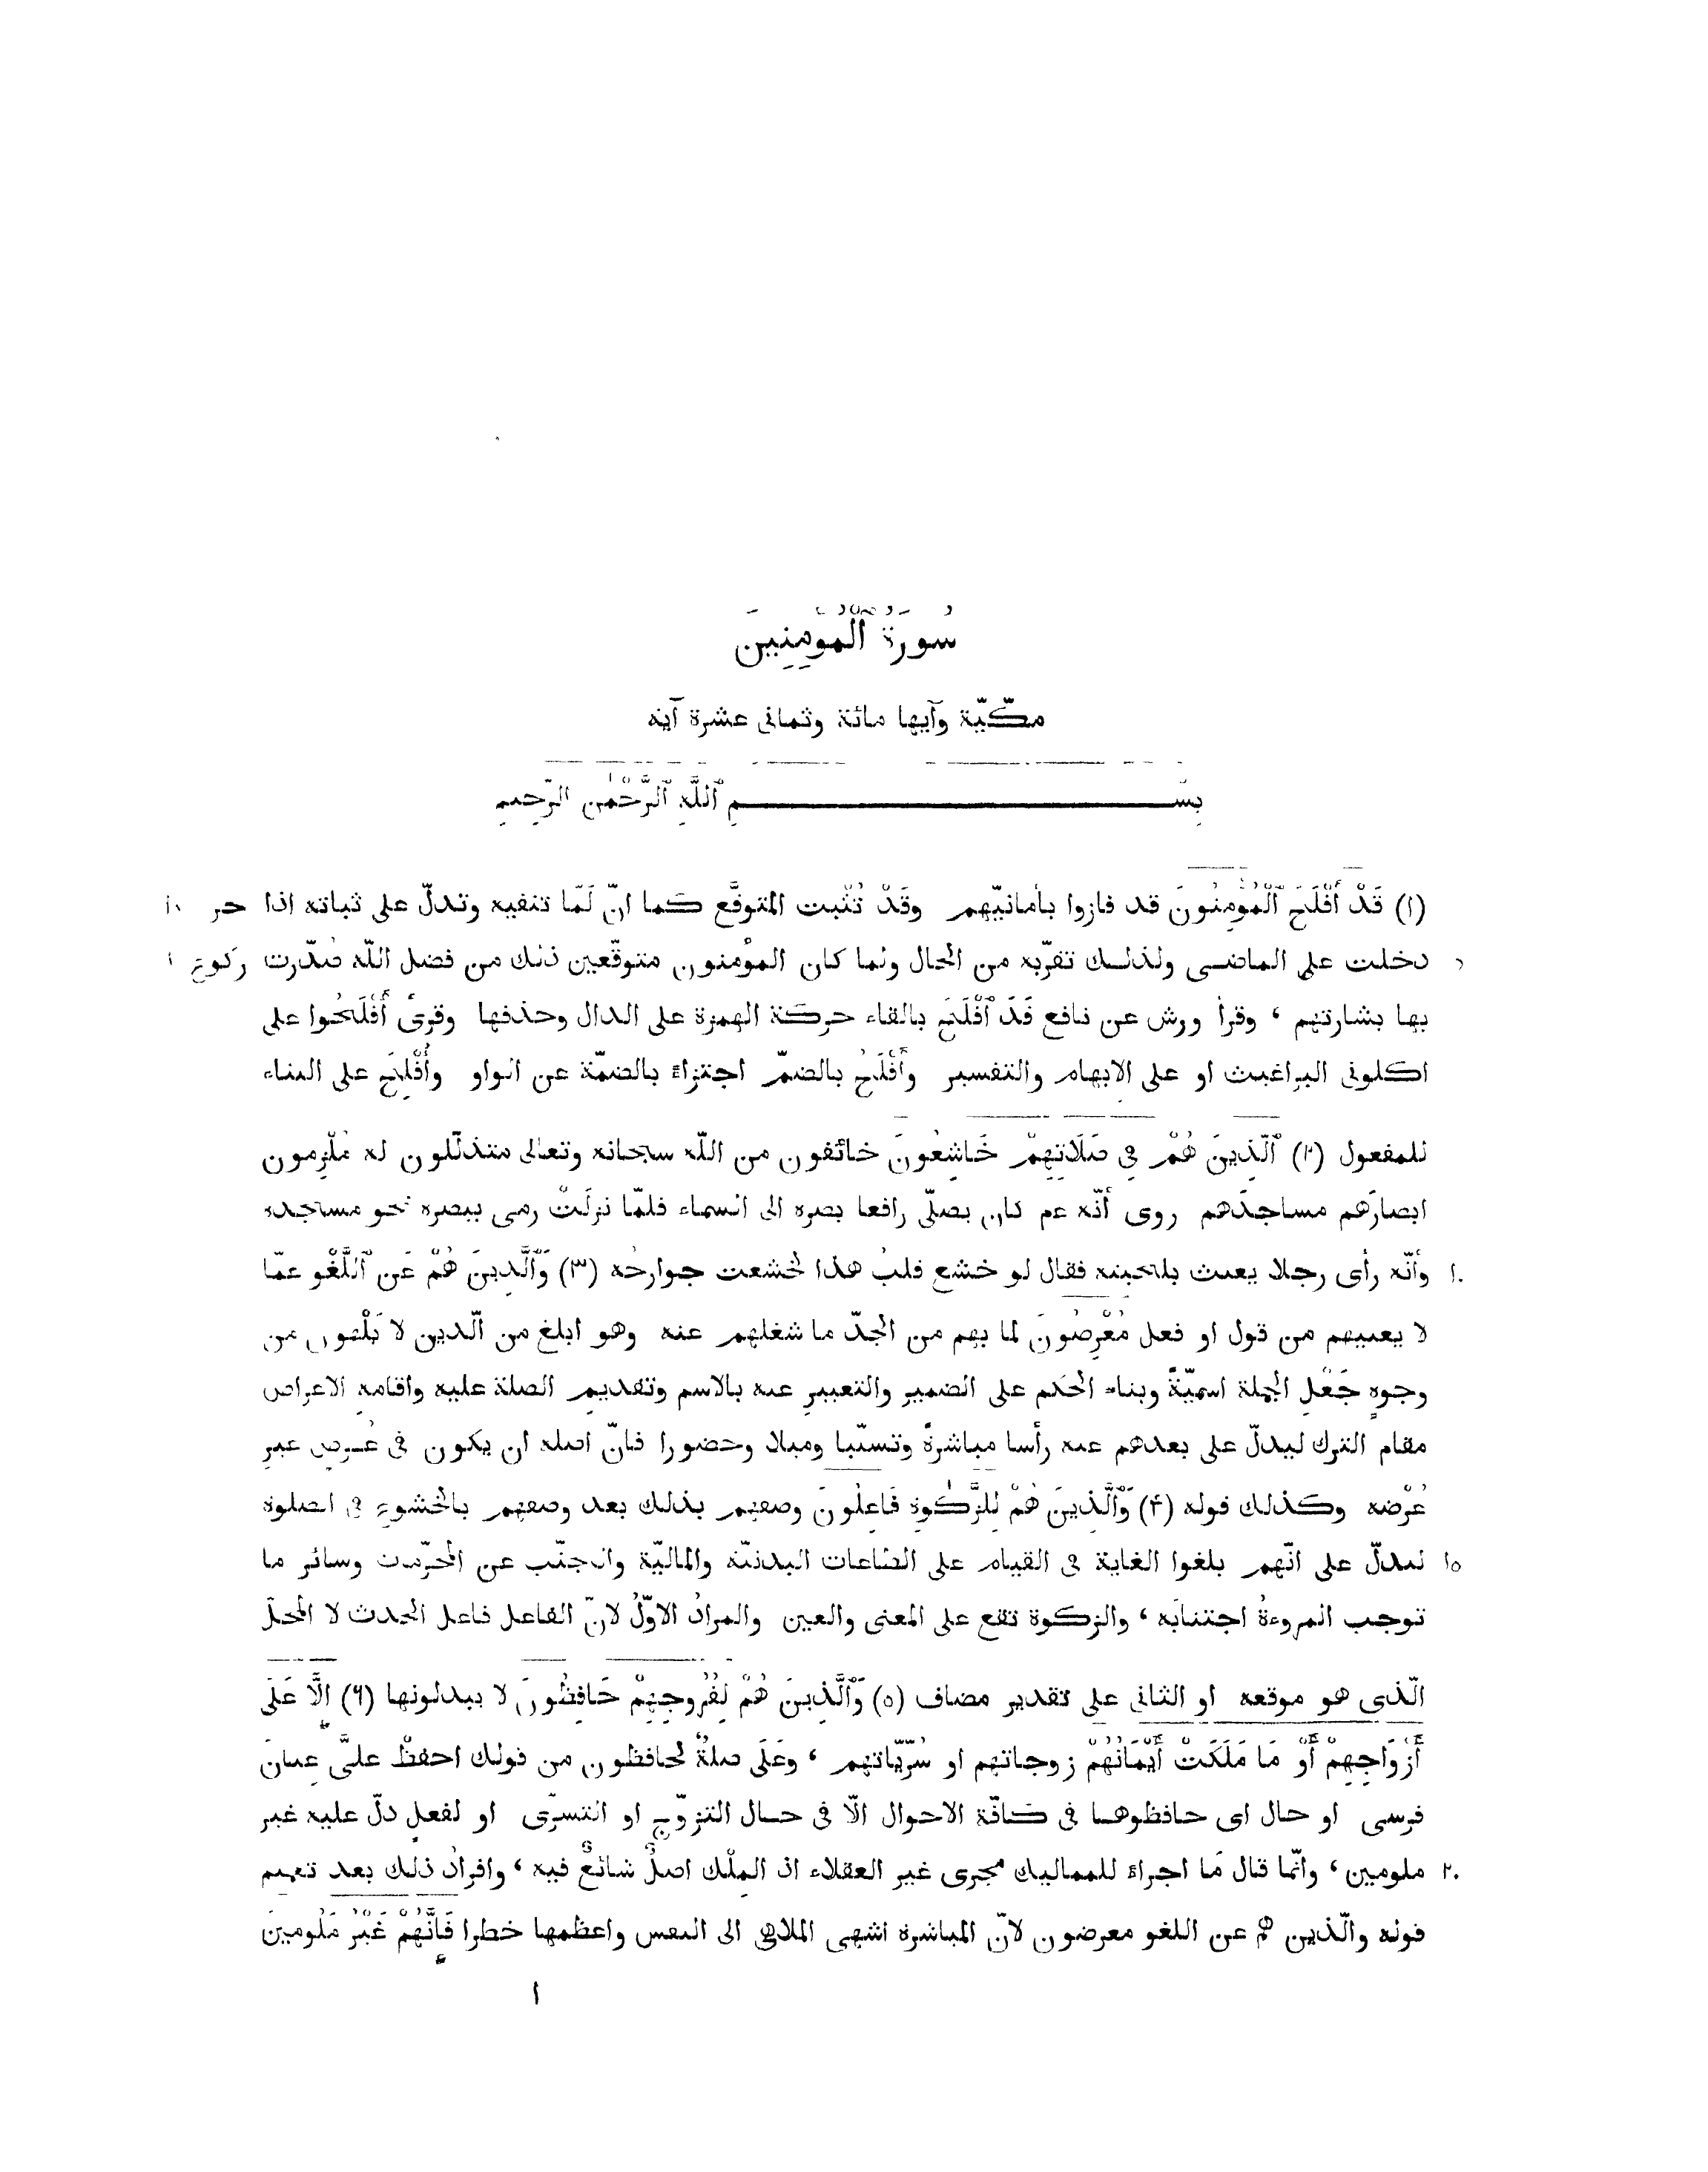 سُورَةُ ٱلْمُؤْمِنِينَ
مكّيّة وآيها مائة وثمانى عشرة آية
بِسْمِ ٱللَّهِ ٱلرَّحْمٰنِ ٱلرَّحِيمِ
(١) قَدْ أَفْلَحَ ٱلْمُؤْمِنُونَ قد فازوا بأمانيّهم وقَدْ تُثْبت المتوقَّع كما انّ لَمّا تنفيه وتدلّ على ثباته اذا جزء ١٨
دخلت على الماضى ولذلك تقرّبه من الحال ولما كان المؤمنون متوقّعين ذلك من فضل اللّه صُدّرت ركوع ١
بها بشارتهم ، وقرأ ورش عن نافع قَدَ ٱفْلَحَ بالقاء حركة الهمزة على الدال وحذفها وقرئ أَفْلَحُوا على
اكلونى البراغيث او على الابهام والتفسير وأَفْلَحُ بالضمّ اجتزاءً بالضمّة عن الواو وأُفْلِحَ على البناء
للمفعول (٢) ٱلَّذِينَ هُمْ فِى صَلَاتِهِمْ خَاشِعُونَ خائفون من اللّه سبحانه وتعالى متذلّلون له مُلْزِمون
ابصارَهم مساجدَهم روى أنّه عم كان يصلّى رافعا بصره الى السماء فلمّا نزلَتْ رمى ببصره نحو مسجده
١٠ وأنّه رأى رجلا يعبث بلحيته فقال لو خشع قلبُ هذا لخشعت جوارحُه (٣) وَٱلَّذِينَ هُمْ عَنِ ٱللَّغْوِ عمّا
لا يعنيهم من قول او فعل مُعْرِضُونَ لما بهم من الجدّ ما شغلهم عنه وهو ابلغ من الّذين لا يَلْهون من
وجوهٍ جَعْلِ الجملة اسميّةً وبناء الحكم على الضمير والتعبيرِ عنه بالاسم وتقديمِ الصلة عليه واقامةِ الاعراض
مقام الترك ليدلّ على بعدهم عنه رأسا مباشرةً وتسبّبا وميلا وحضورا فانّ اصله ان يكون فى عُرْض غيرِ
عُرْضه وكذلك قوله (۴) وَٱلَّذِينَ هُمْ لِلزَّكٰوةِ فَاعِلُونَ وصفهم بذلك بعد وصفهم بالخشوع فى الصلوة
١٥ ليدلّ على انّهم بلغوا الغاية فى القيام على الطاعات البدنيّة والماليّة والتجنّب عن المحرّمات وسائر ما
توجب المروءةُ اجتنابَه ، والزكوة تقع على المعنى والعين والمرادُ الاوّلُ لانّ الفاعل فاعل الحدث لا المحلّ
الّذى هو موقعه او الثانى على تقدير مضاف (٥) وَٱلَّذِينَ هُمْ لِفُرُوجِهِمْ حَافِظُونَ لا يبدلونها (٦) إلَّا عَلَى
أَزْوَاجِهِمْ أَوْ مَا مَلَكَتْ أَيْمَانُهُمْ زوجاتهم او سُرّيّاتهم ، وعَلَى صلةٌ لحافظون من قولك احفظْ علىَّ عِنانَ
فرسى او حال اى حافظوها فى كافّة الاحوال الّا فى حال التزوّج او التسرّى او لفعلٍ دلّ عليه غير
٢٠ ملومين ، وانّما قال مَا اجراءً للمماليك مجرى غير العقلاء اذ المِلْك اصلٌ شائعٌ فيه ، وافرادُ ذلك بعد تعميم
قوله والّذين هم عن اللغو معرضون لانّ المباشرة اشهى الملاهى الى النفس واعظمها خطرا فَإِنَّهُمْ غَيْرُ مَلُومِينَ
١